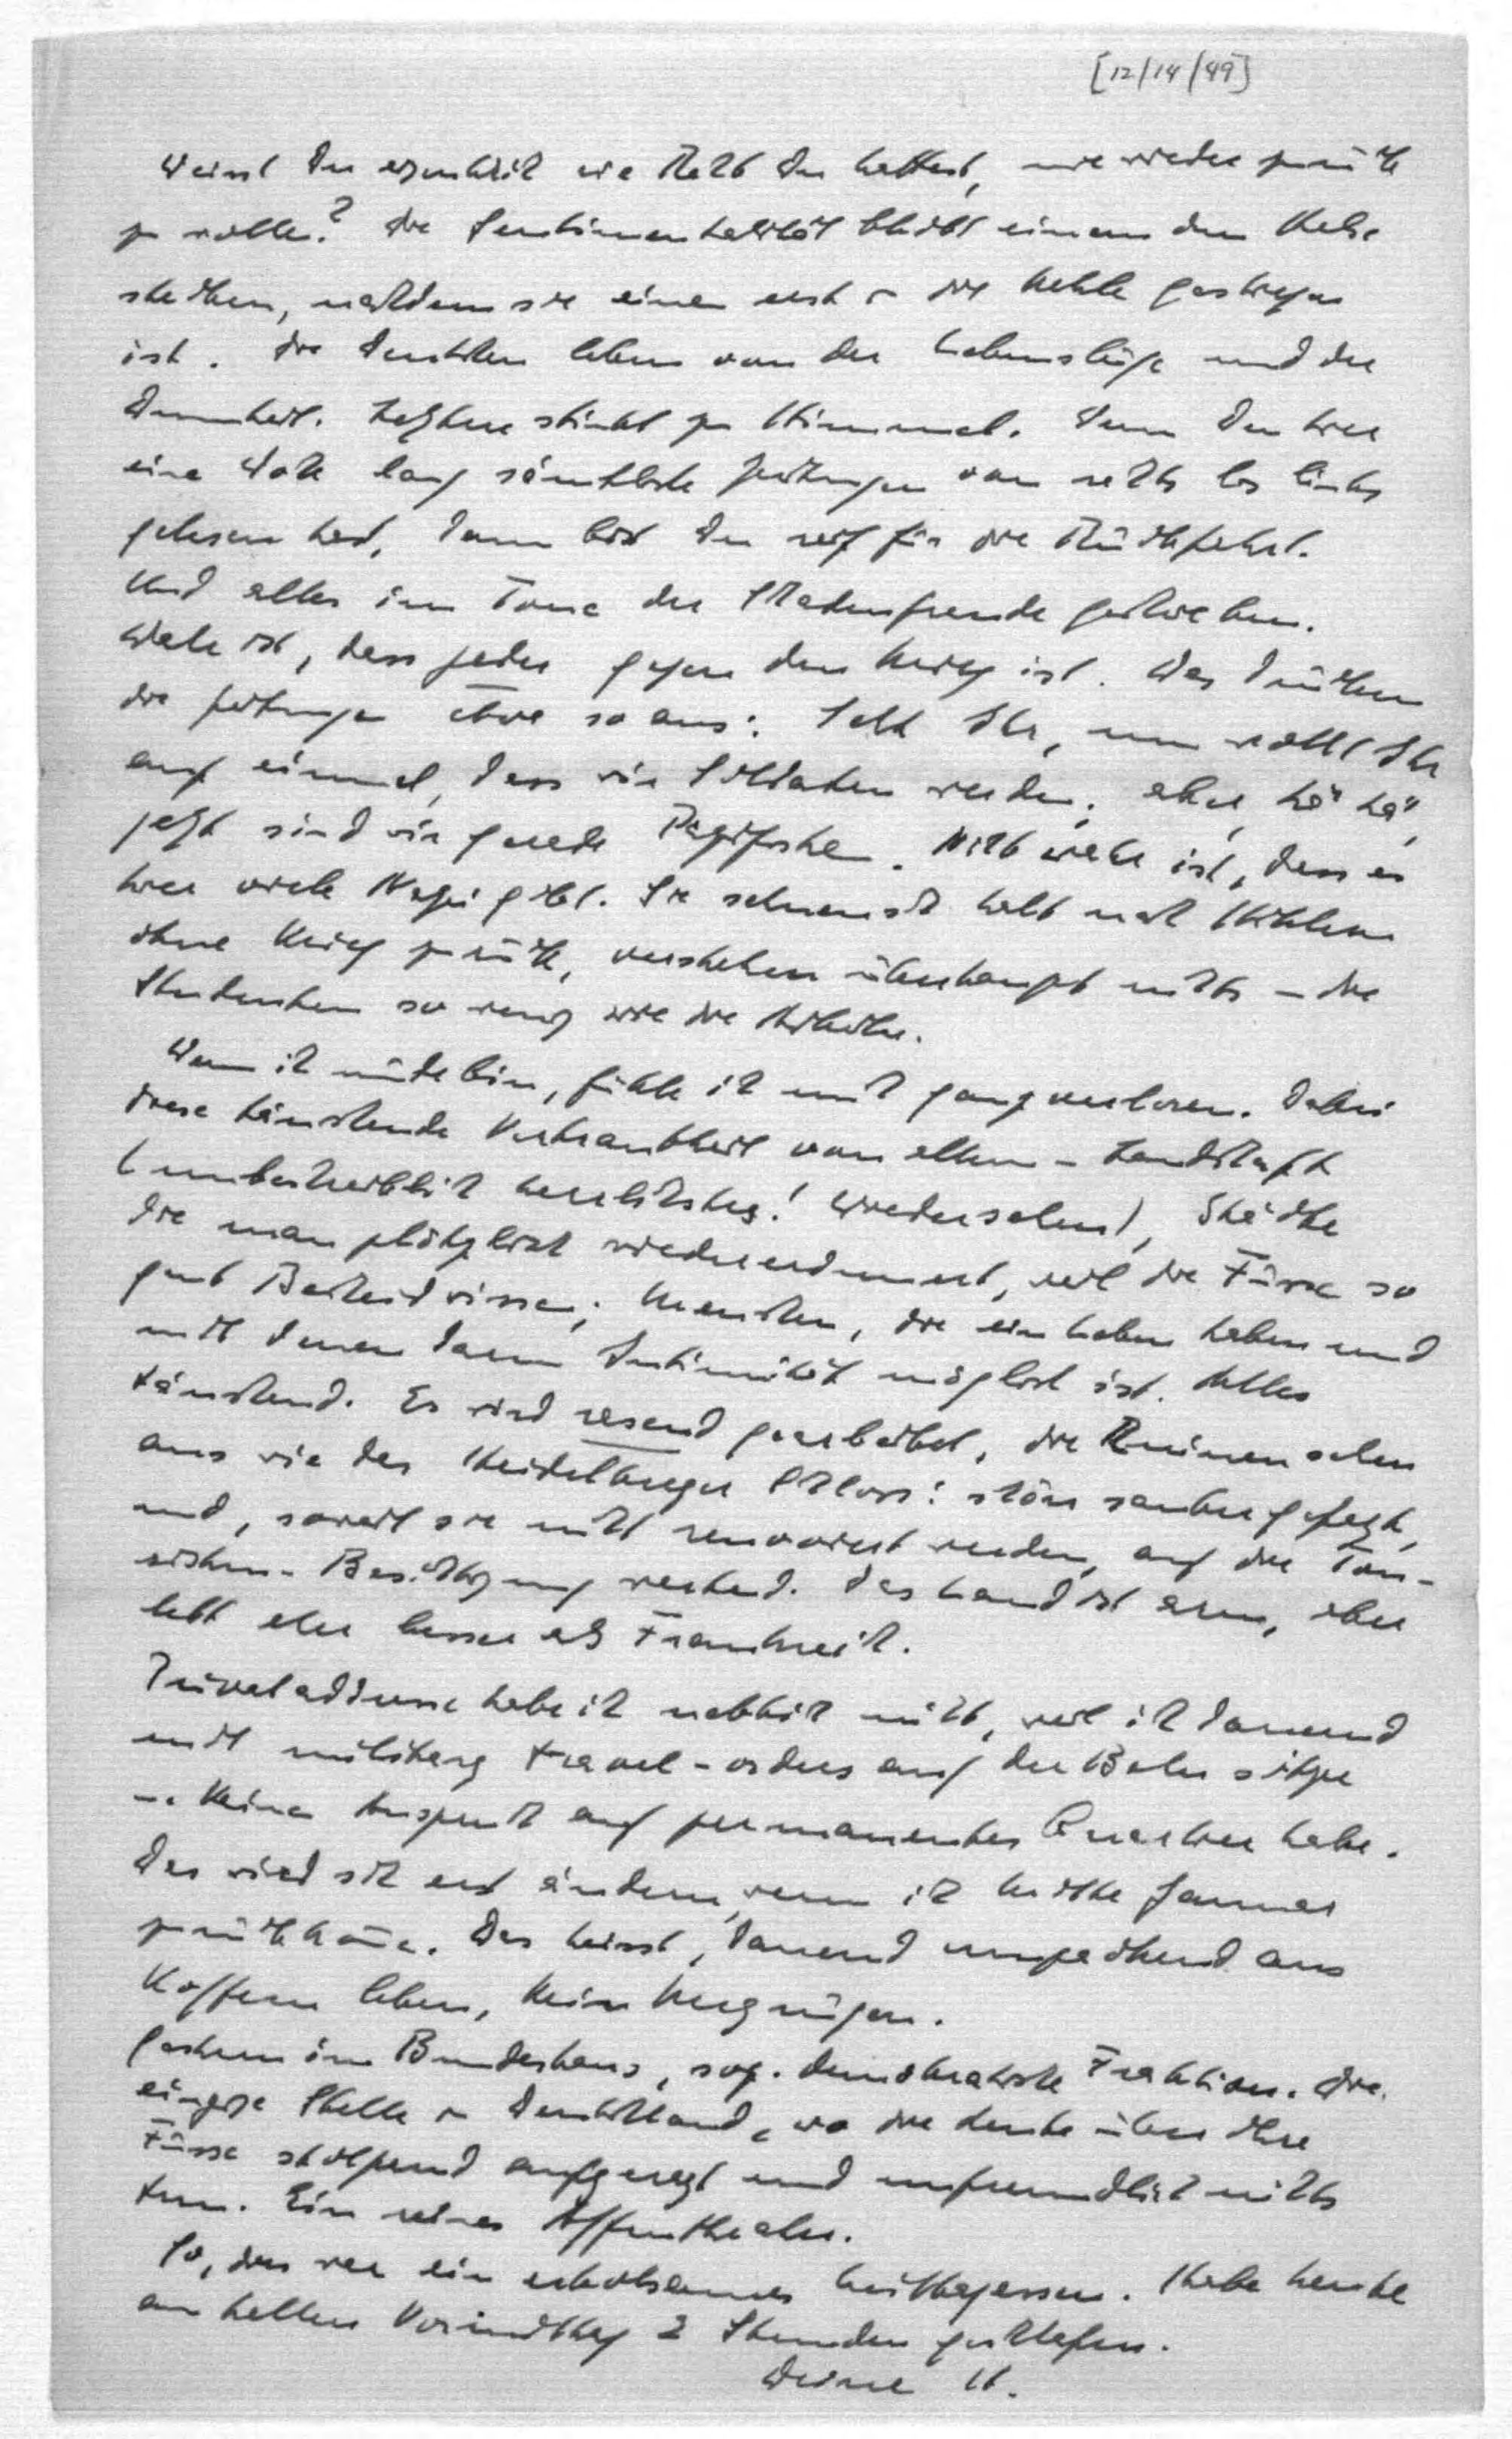 [12/14/49]
Weisst Du eigentlich wie Recht Du hattest, nie wieder zurück
zu wollen? Die Sentimentalität bleibt einem im Halse
stecken, nachdem sie einem erst in die Kehle gestiegen
ist. Die Deutschen leben von der Lebenslüge und der
Dummheit. Letztere stinkt zum Himmel. Wenn Du hier
eine Woche lang sämtliche Zeitungen von rechts bis links
gelesen hast, dann bist Du reif für die Rückfahrt.
Und alles im Tone der Schadenfreude geschrieben.
Wahr ist, dass jeder gegen den Krieg ist. Das drücken
die Zeitungen etwa so aus: Seht Ihr, nun wollt Ihr
auf einmal, dass wir Soldaten werden; aber, hä hä,
jetzt sind wir gerade Pazifisten. Nicht wahr ist, dass es
hier viele Nazi gibt. Sie sehnen sich halt nach Hitler
ohne Krieg zurück, verstehen überhaupt nichts – die
Studenten so wenig wie die Arbeiter.
Wenn ich müde bin, fühle ich mich ganz verloren. Dabei
diese täuschende Vertrautheit von allem – Landschaft
(unbeschreiblich herrlichstes! Wiedersehen), Städte
die man plötzlich wiedererkennt, weil die Füsse so
gut Bescheid wissen; Menschen, die ein Leben haben und
mit denen dann Intimität möglich ist. Alles
täuschend. Es wird rasend gearbeitet, die Ruinen sehen
aus wie das Heidelberger Schloss: schön sauber gefegt,
und, soweit sie nicht renoviert werden, auf die Tou-
risten-Besichtigung wartend. Das Land ist arm, aber
lebt eher besser als Frankreich.
Privataddresse habe ich nebbich nicht, weil ich dauernd
mit military travel-orders auf der Bahn sitze
u. keinen Anspruch auf permanentes Quartier habe.
Das wird sich erst ändern, wenn ich Mitte Januar
zurückkomme. Das heisst, dauernd umpackend aus
Koffern leben, kein Vergnügen.
Gestern im Bundeshaus, sog. demokratische Fraktion. Die
einzige Stelle in Deutschland, wo die Leute über ihre
Füsse stolpernd aufgeregt und unfreundlich nichts
tun. Ein reines Affentheater.
So, das war ein erholsames Mittagessen. Habe heute
am hellen Vormittag 2 Stunden geschlafen.
Deine H.